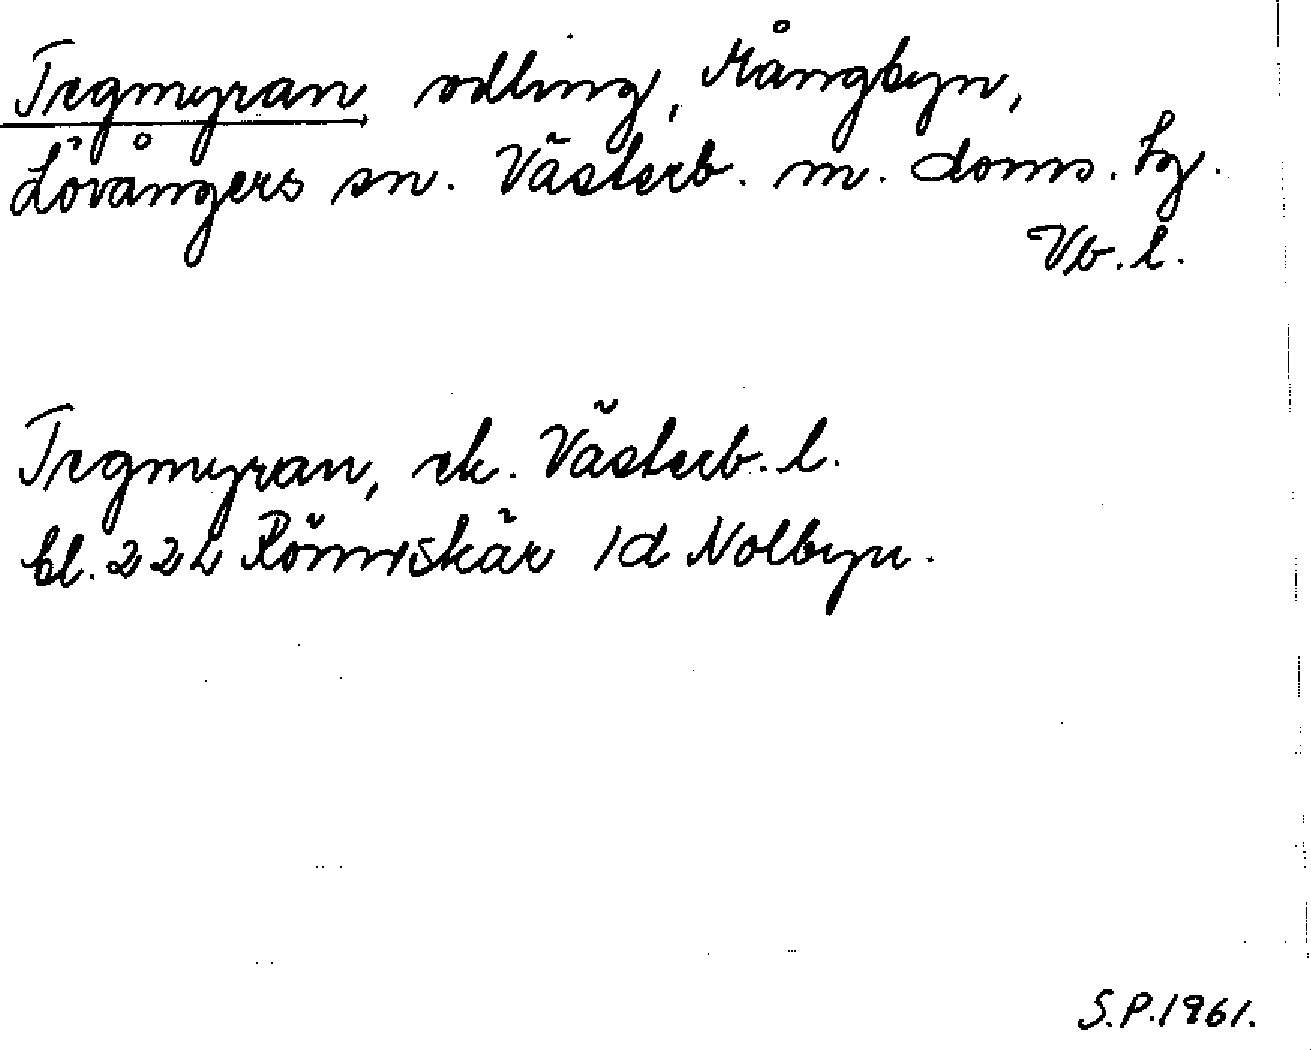 Tegmyran odling, Mångbyn,
Lövångers sn. Västerb. m. doms. tg.
Vb. l.
Tegmyran, ek. Västerb. l.
bl. 22L Rönnskär 1d Nolbyn.
S.P.1961.